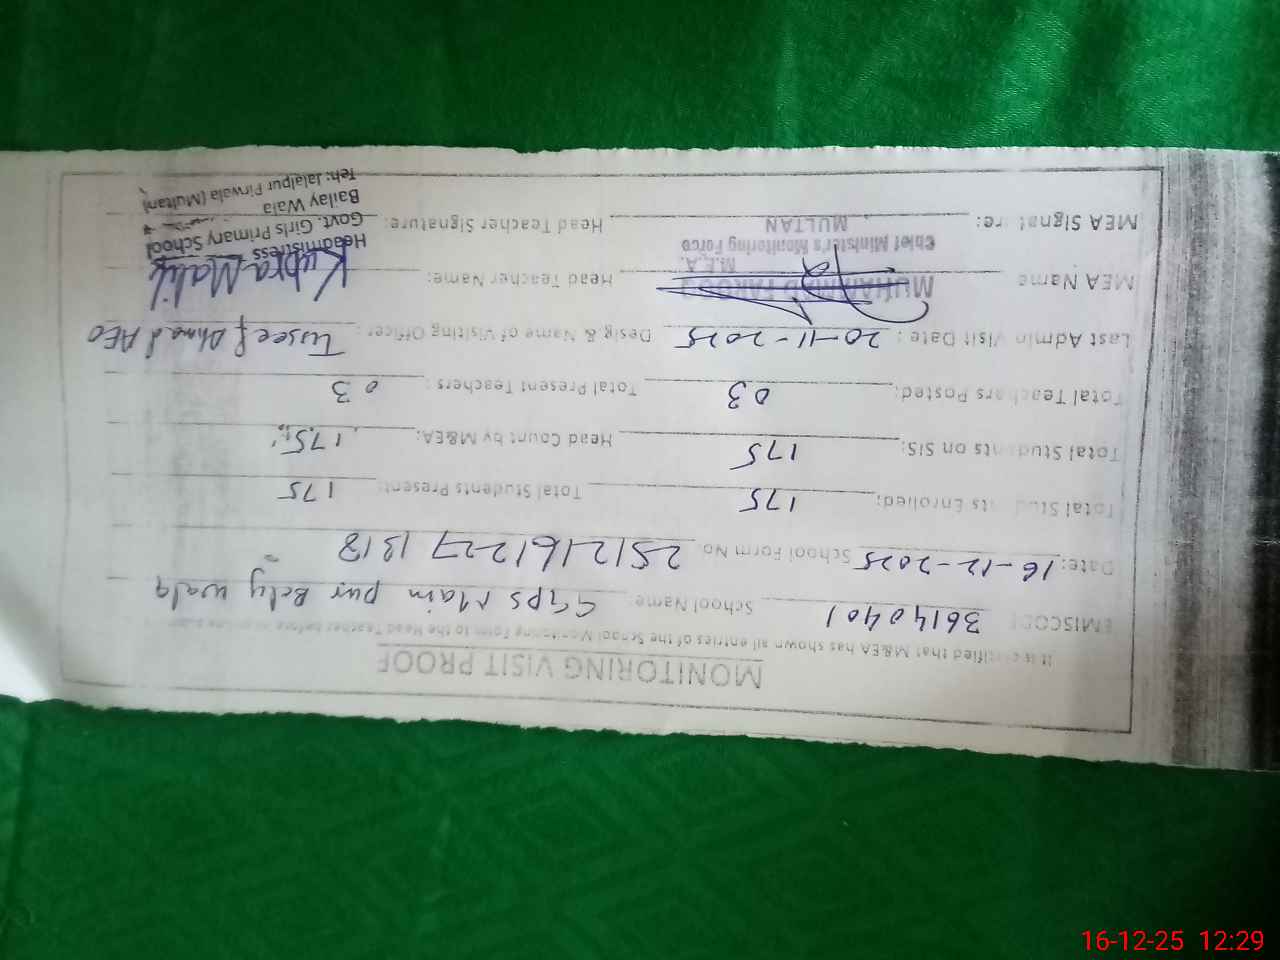 MONITORING VISIT PROOF
It is certified that M&EA has shown all entries of the School Monitoring Form to the Head Teacher before
EMISCODE 36140401 School Name: GGPS Main pur Bely wala
Date: 16-12-2025 School Form No. 251216122718 18
Total Students Enrolled: 175 Total Students Present: 175
Total Students on SIS: 175 Head Count by M&EA: 175
Total Teachers Posted: 03 Total Present Teachers: 03
Last Admin Visit Date: 20-11-2025 Desig & Name of Visiting Officer: Ahmad AEO
MEA Name MUHAMMAD FAROOQ Head Teacher Name: Kubra Malik
M.E.A.
Chief Minister's Monitoring Force
MULTAN
MEA Signature: Head Teacher Signature:
Headmistress
Govt. Girls Primary School
Bailay Wala
Teh: Jalalpur Pirwala (Multan)
16-12-25 12:29